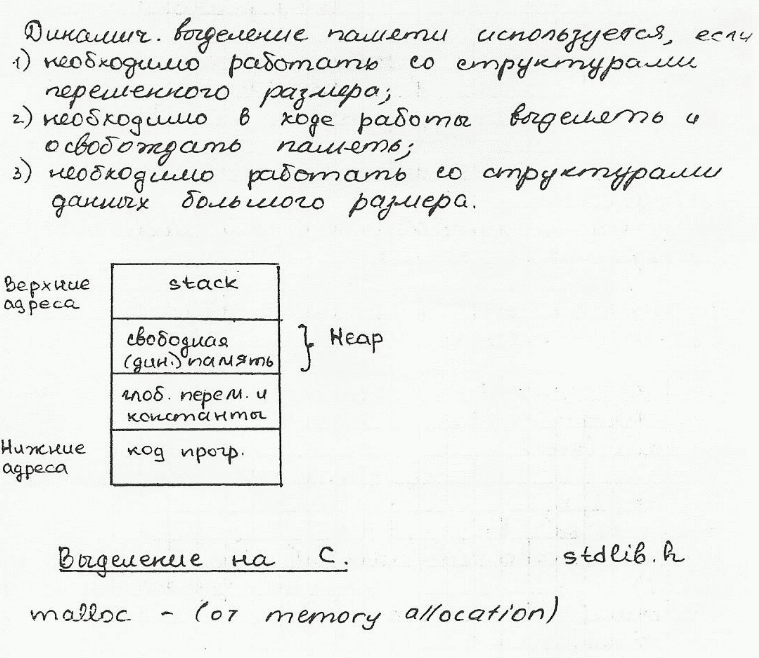 Динамич. выделение памяти используется, если
1) необходимо работать со структурами
переменного размера;
2) необходимо в ходе работы выделять и
освобождать память;
3) необходимо работать со структурами
данных большого размера.
Верхние
адреса
stack
свободная
(дин.) память
} Heap
глоб. перем. и
константы
Нижние
адреса
код прогр.
Выделение на С.
stdlib.h
malloc - (от memory allocation)